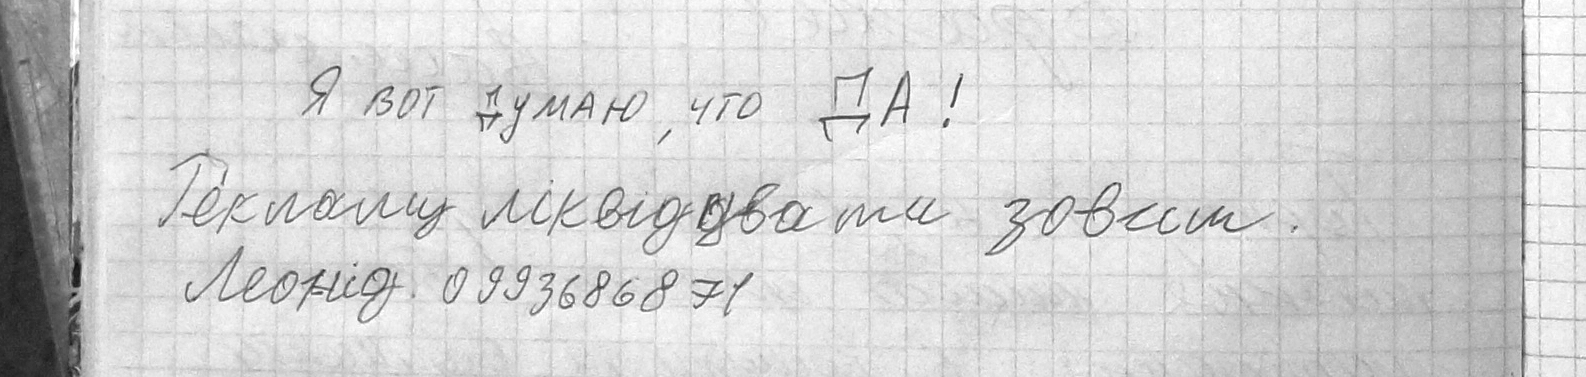 Я вот думаю, что ДА!
Рекламу ліквідувати зовсим.
Леонід. 0993686871